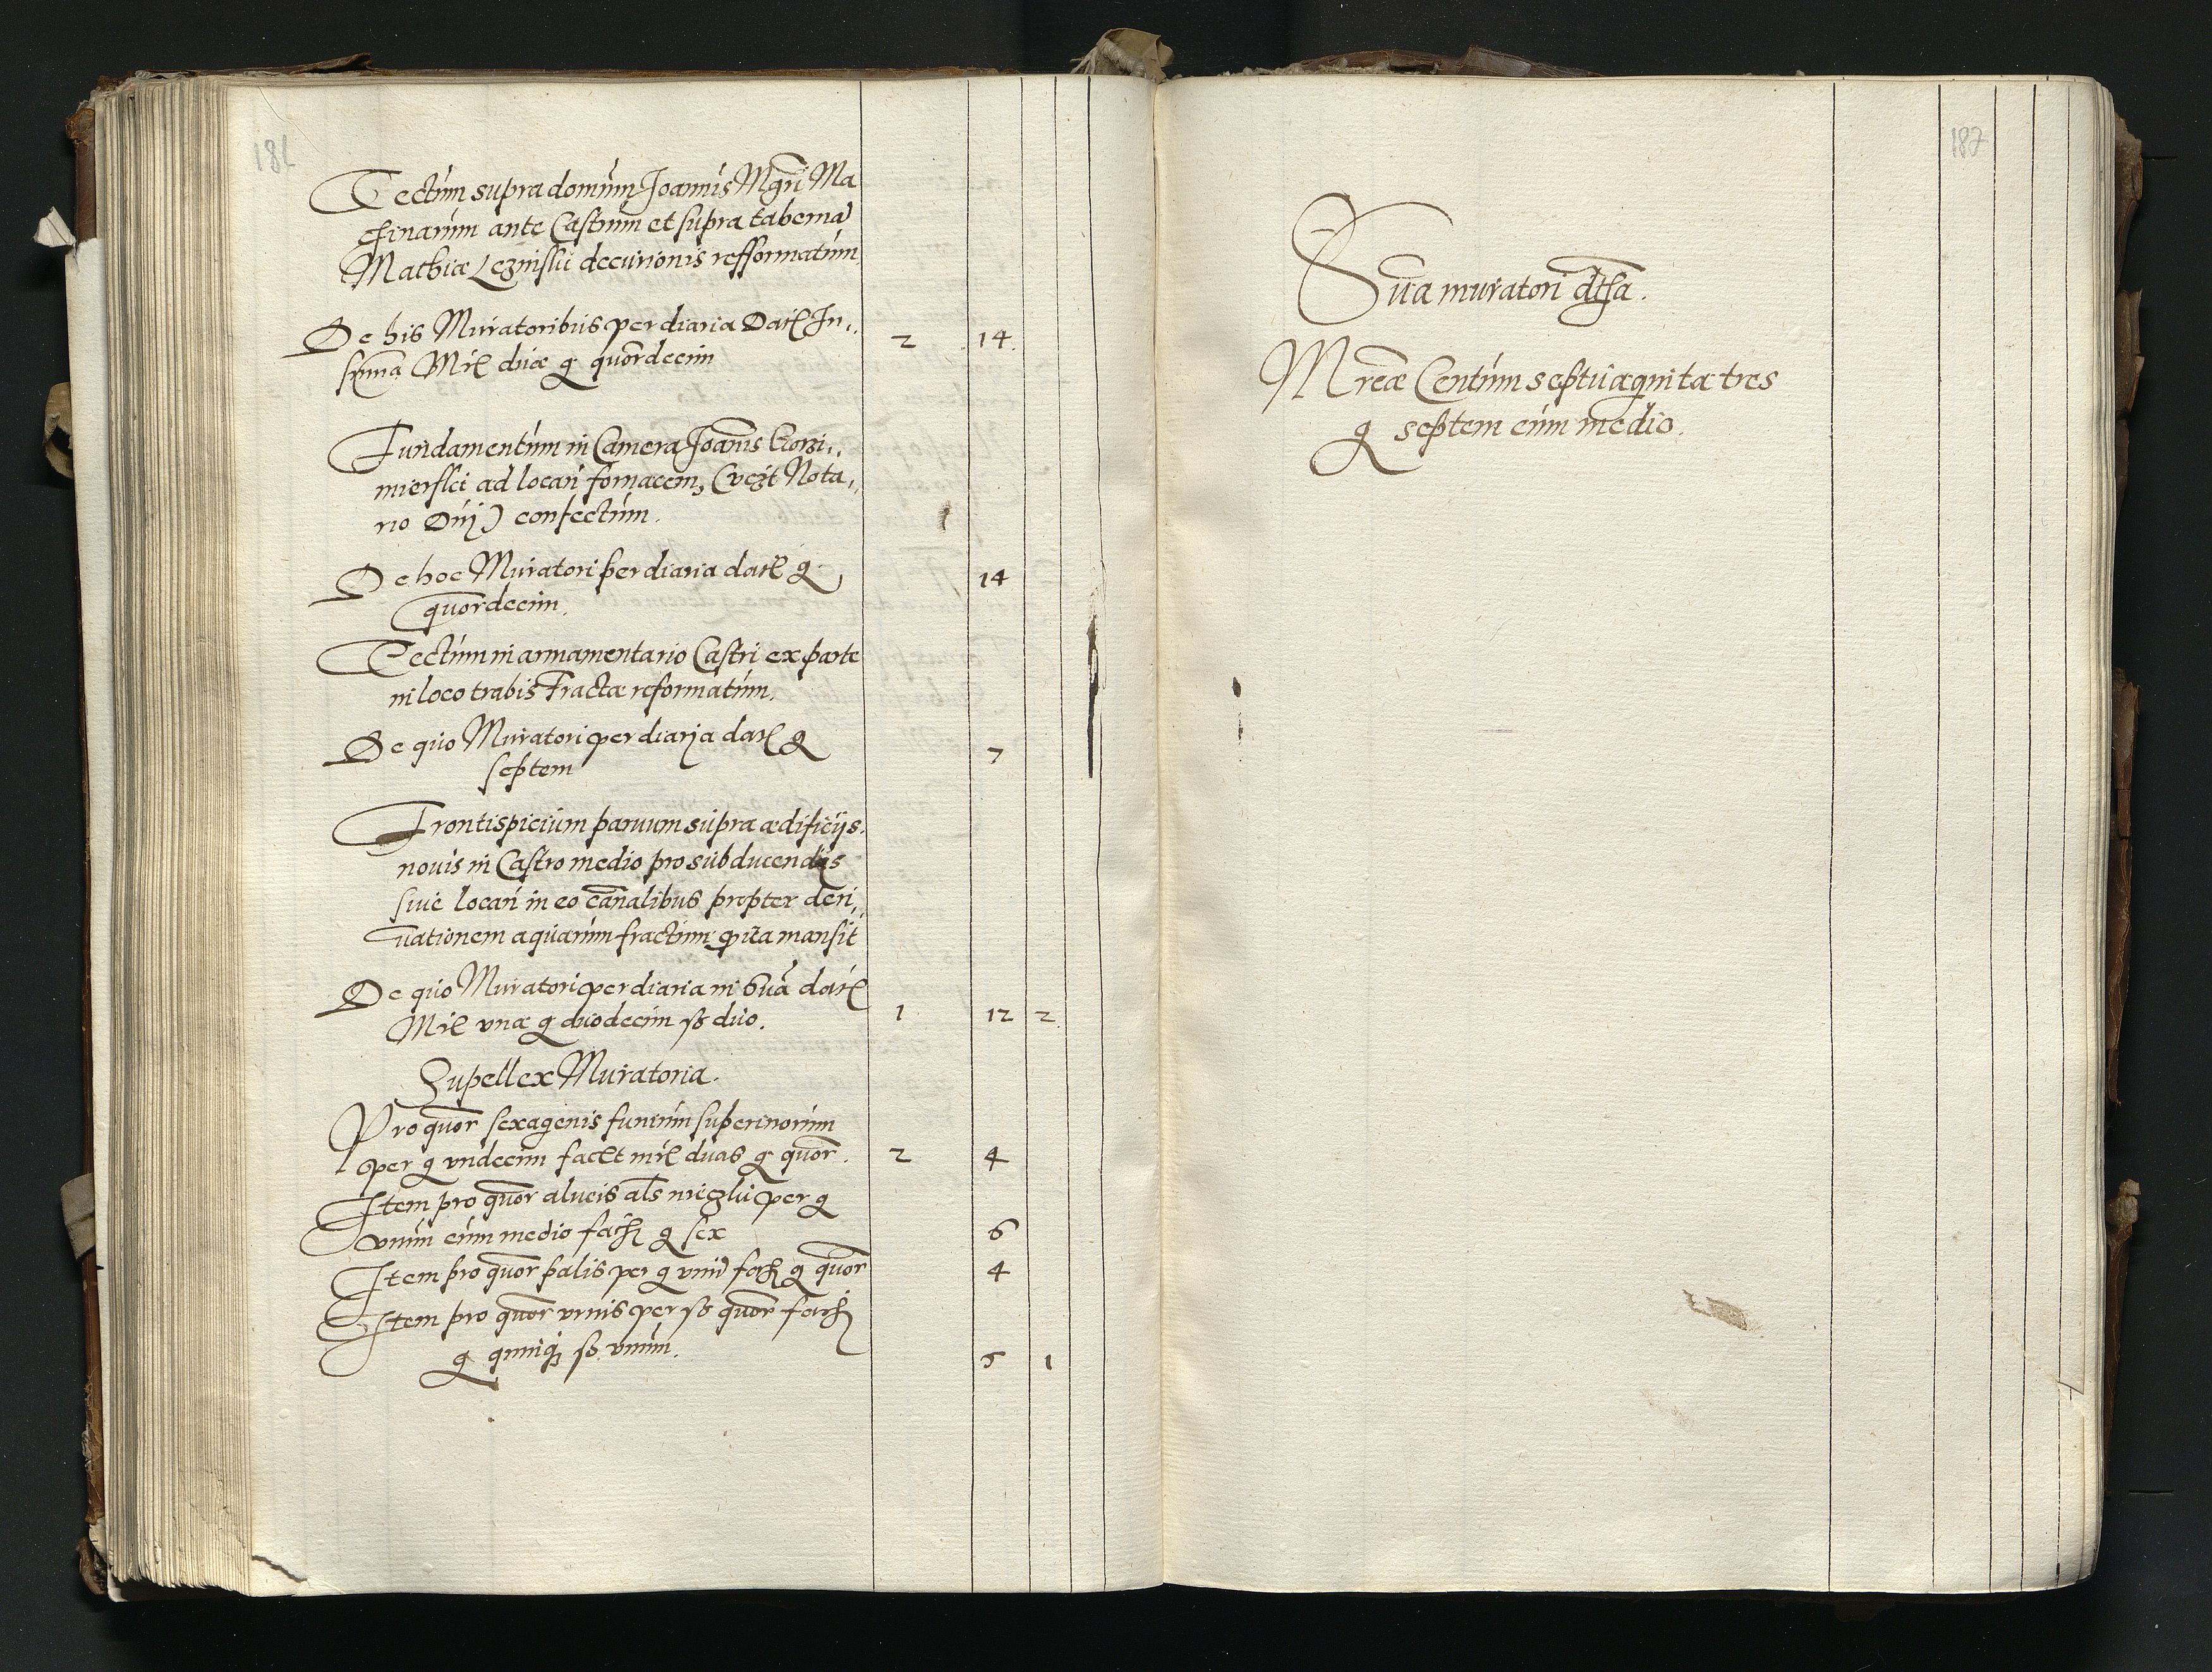 186
Tectum supra domum Joannis Mgri Ma
chinarum ante Castrum et supra taberna
Mathiæ Legnisky decurionis refformatum
De his Muratoribus per diaria Darl In,,
summa Mrl duæ g quordecim 2 14
Fundamentum in Camera Joanis
mierskei ad locan fornacem, (vezt Nota,,
rio Duj) confectum.
De hoc Muratori per diaria darl g
quordecim. 14
Tectum in armamentario Castri ex parte
in loco trabis Fractæ reformatum.
De quo Muratori per diarja darl g
septem 7
Frontispicium paruum supra ædificijs
nouis in Castro medio pro subducendis
siue locan in eo canalibus propter deri,,
uationem aquarum fractum mansit
De quo Muratori per diaria in Sua darl
Mrl vnæ g duodecim ss duo. 1 12 2
Supellex Muratoria.
Pro quor sexagenis funium superinorum
per g vndecim facit mrl duas g quor. 2 4
Item pro quor alueis als nieczki per g
vnum cum medio fach g sex 6
Item pro quor palis per g vnu fach g quor 4
Item pro quor vrnis per ss quor fach
g quinq ss vnum. 5 1
187
Sua muratori dtha.
Mrcæ Centum septuaginta tres
g septem cum medio.